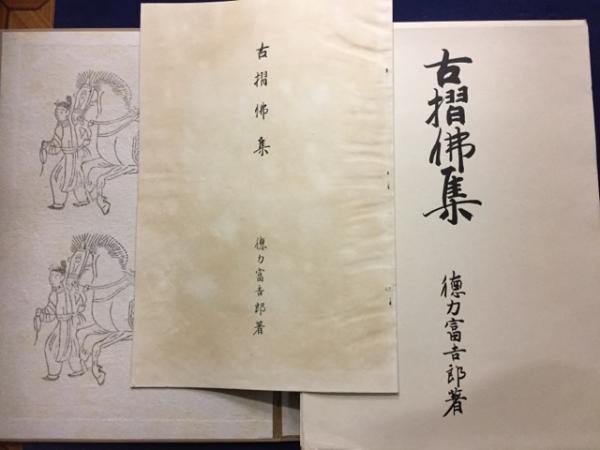 古摺佛集
徳力富吉郎著
古摺佛集
徳力富吉郎著